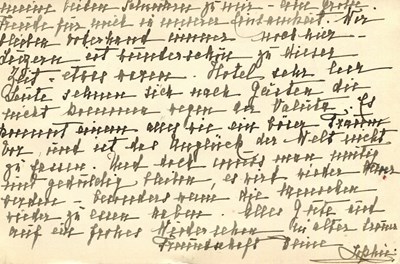 meine beiden Schwestern zu mir - eine große
Freude für mich in unserer Einsamkeit. Wir
bleiben vorderhand immer noch hier -
ist wunderschön zu dieser
Zeit - etwas waren. Hotel sehr leer
Leute sehnen sich nach Gästen die
nicht kommen wegen der Valuta. Es
kommt einem alles wie ein böser Traum
vor und ist das Unglück der Welt nicht
zu fassen. Und doch muss man mutig
und geduldig bleiben, es wird wieder
werden - besonders wenn die Menschen
wieder zu essen haben. Alles Gute und
auf ein frohes Wiedersehen In alter treuer
Freundschaft Deine
Sophie